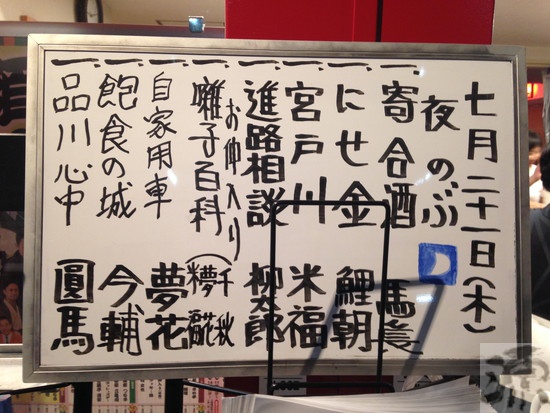 七月二十一日(木)
夜のぶ
一、寄合酒 馬
一、にせ金 鯉朝
一、宮戸川 米福
一、進路相談 柳太郎
お仲入り
一、囃子百科 (千秋
一、自家用車 夢花
一、飽食の城 今輔
一、品川心中 圓馬